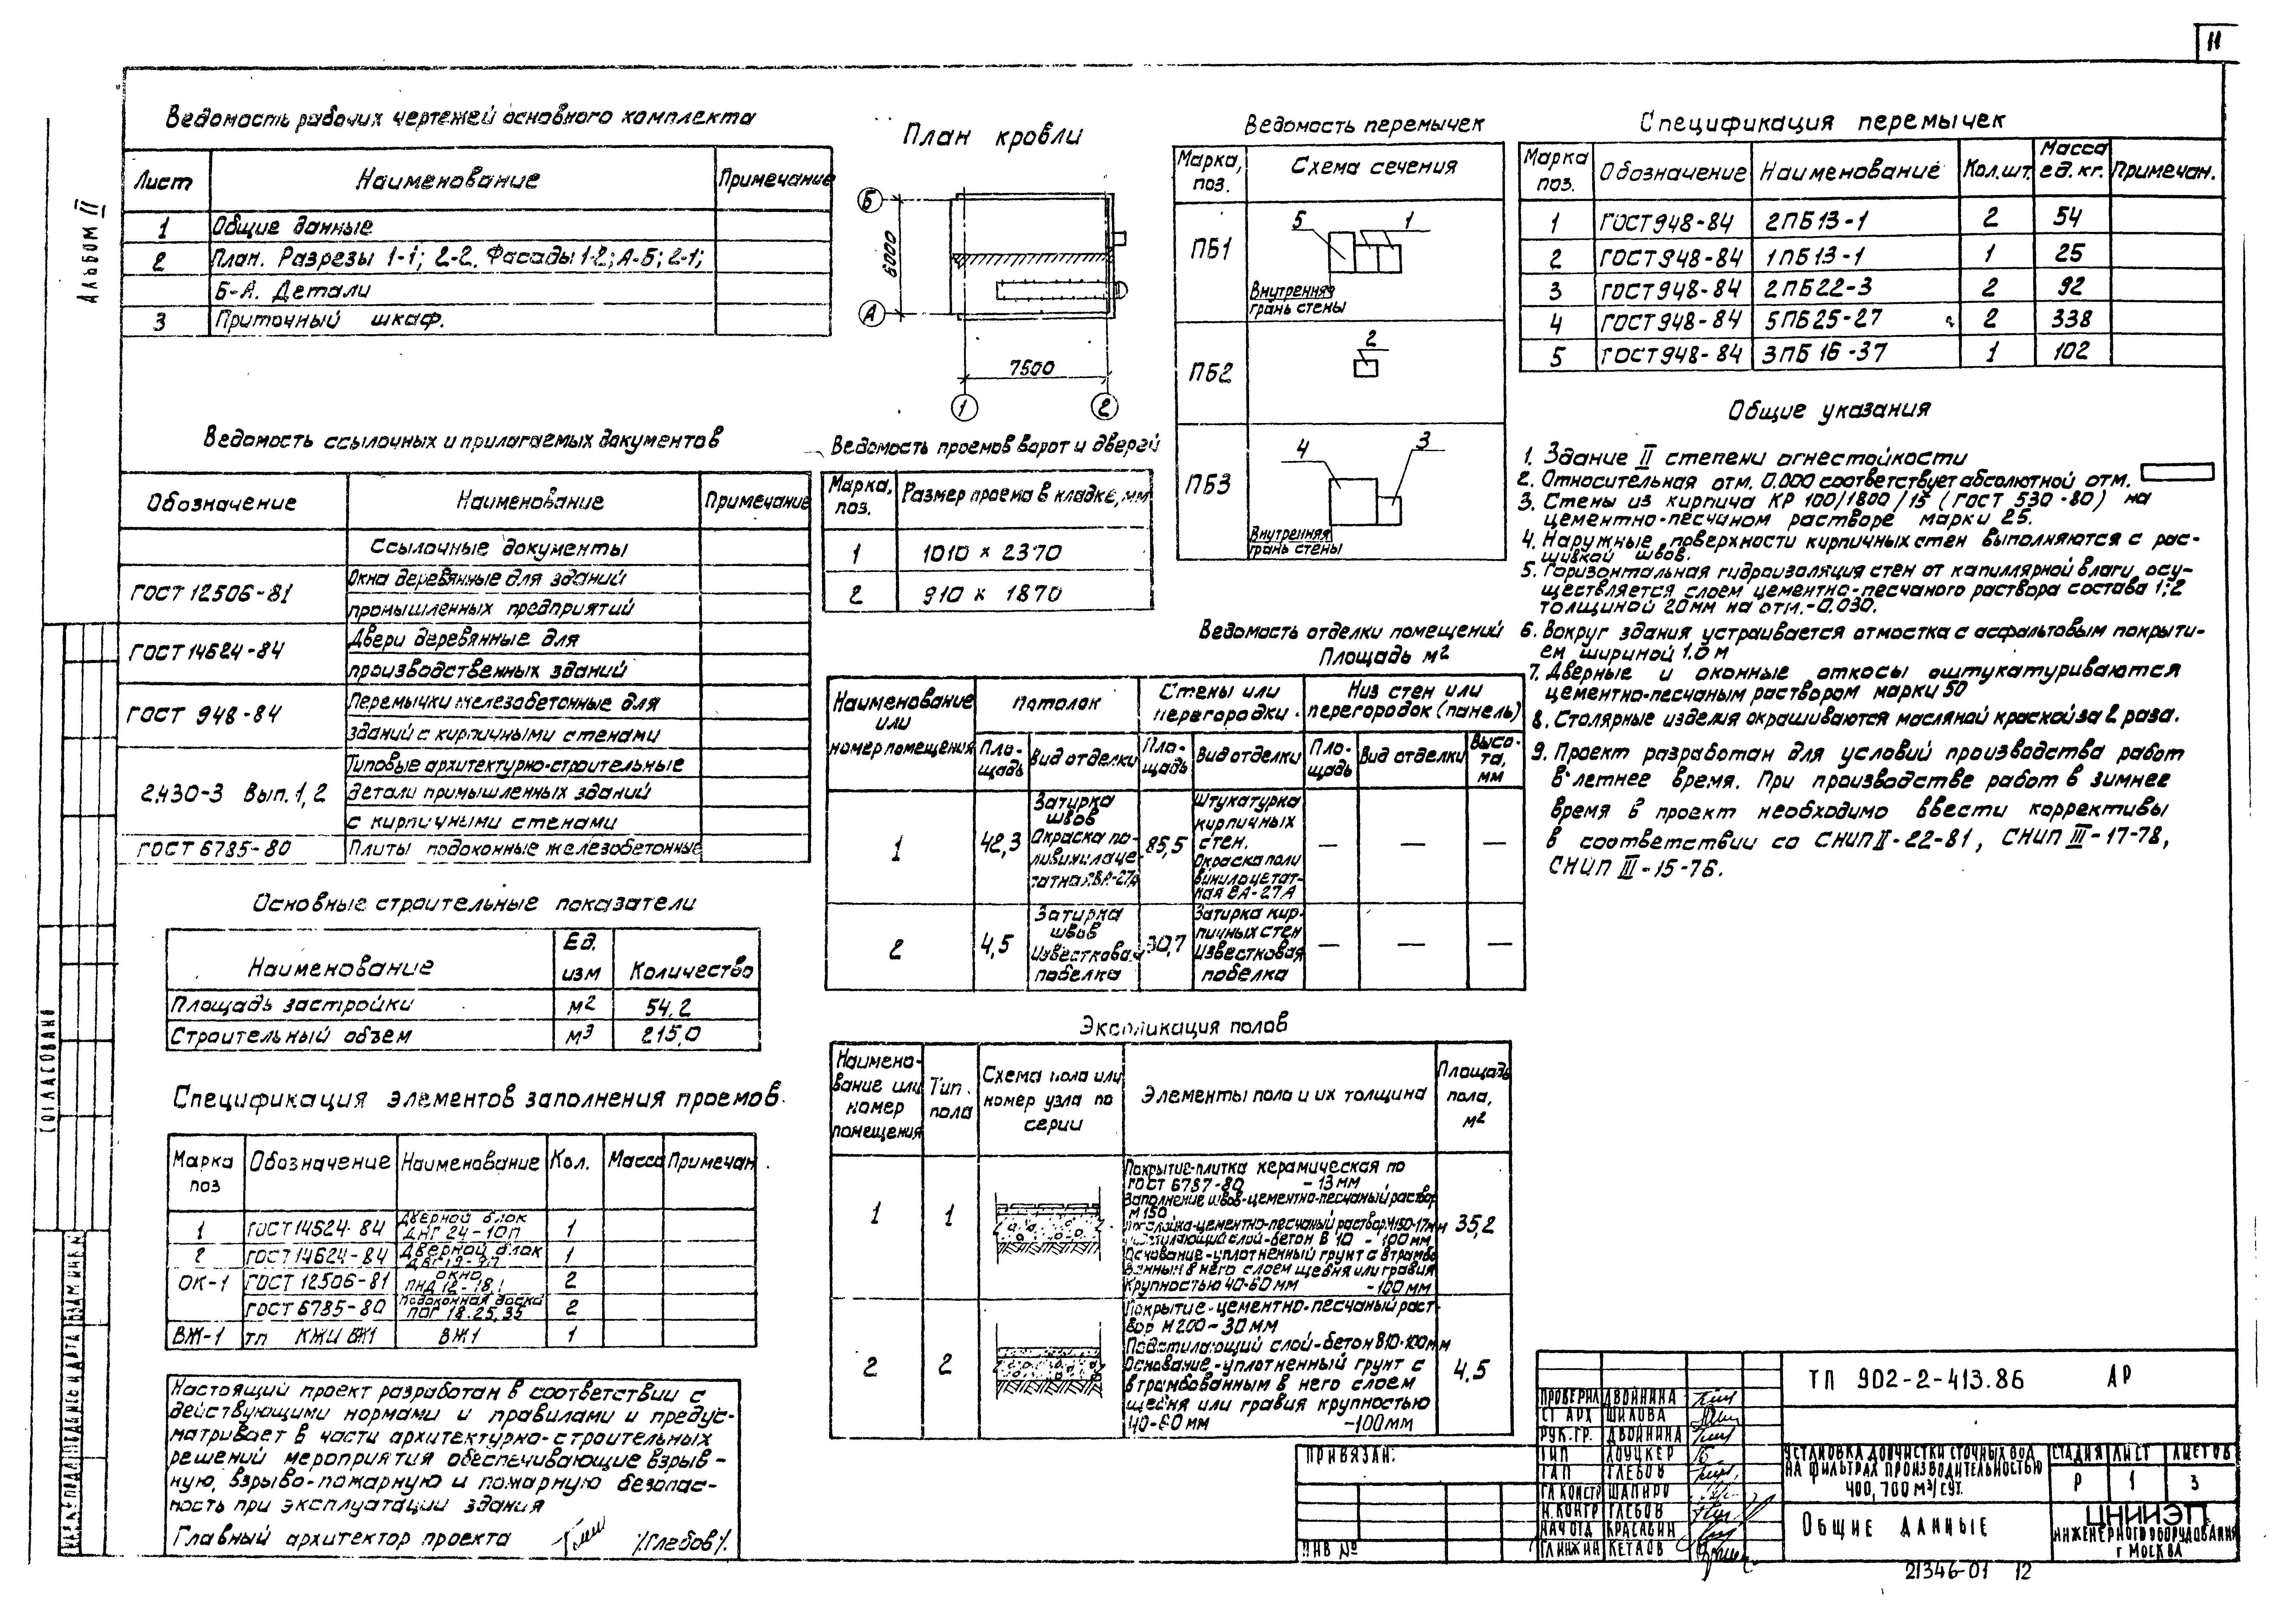 11
Альбом II
Ведомость рабочих чертежей основного комплекта
Лист Наименование Примечание
1 Общие данные
2 План. Разрезы 1-1; 2-2. Фасады 1-2; А-Б; 2-1;
Б-А. Детали
3 Приточный шкаф.
Ведомость ссылочных и прилагаемых документов
Обозначение Наименование Примечание
Ссылочные документы
ГОСТ 12506-81 Окна деревянные для зданий
промышленных предприятий
ГОСТ 14624-84 Двери деревянные для
производственных зданий
ГОСТ 948-84 Перемычки железобетонные для
зданий с кирпичными стенами
2.430-3 Вып. 1, 2 Типовые архитектурно-строительные
детали промышленных зданий
с кирпичными стенами
ГОСТ 6785-80 Плиты подоконные железобетонные
Основные строительные показатели
Наименование Ед. изм Количество
Площадь застройки м2 54,2
Строительный объем м3 215,0
Спецификация элементов заполнения проемов.
Марка поз Обозначение Наименование Кол. Масса Примечан.
1 ГОСТ 14624-84 Дверной блок ДНГ 24-10П 1
2 ГОСТ 14624-84 Дверной блок 1
ОК-1 ГОСТ 12506-81 Окно ПНД 12-18.1 2
ГОСТ 6785-80 Подоконная доска ПОГ 18.25.35 2
ВЖ-1 ТП КЖИ ВЖ1 ВЖ1 1
Настоящий проект разработан в соответствии с
действующими нормами и правилами и предус-
матривает в части архитектурно-строительных
решений мероприятия обеспечивающие взрыв-
ную, взрыво-пожарную и пожарную безопас-
ность при эксплуатации здания
Главный архитектор проекта /Глебов/
План кровли
Б
А
6000
7500
1 2
Ведомость проемов ворот и дверей
Марка, поз. Размер проема в кладке, мм
1 1010 × 2370
2 910 × 1870
Ведомость перемычек
Марка, поз. Схема сечения
ПБ1 5 1
Внутренняя
грань стены
ПБ2 2
ПБ3 4 3
Внутренняя
грань стены
Ведомость отделки помещений
Площадь м2
Наименование или номер помещения
Потолок
Стены или перегородки.
Низ стен или перегородок (панель)
Площадь Вид отделки Площадь Вид отделки Площадь Вид отделки Высота, мм
1 42,3 Затирка швов Окраска поливинилацетатная ВА-27А 85,5 Штукатурка кирпичных стен. Окраска поливинилацетатная ВА-27А — — —
2 4,5 Затирка швов Известковая побелка 30,7 Затирка кирпичных стен Известковая побелка — — —
Экспликация полов
Наименование или номер помещения Тип пола Схема пола или номер узла по серии Элементы пола и их толщина Площадь пола, м2
1 1 35,2
Покрытие-плитка керамическая по
ГОСТ 6787-80 - 13мм
Заполнение швов-цементно-песчаный раствор
М150
Прослойка-цементно-песчаный раствор М150-17мм
Подстилающий слой-бетон В10 - 100мм
Основание-уплотненный грунт с втрамбо
ванным в него слоем щебня или гравия
крупностью 40-60мм -100мм
2 2 4,5
Покрытие-цементно-песчаный раст-
вор М200-30мм
Подстилающий слой-бетон В10-100мм
Основание-уплотненный грунт с
втрамбованным в него слоем
щебня или гравия крупностью
40-60мм -100мм
Спецификация перемычек
Марка поз. Обозначение Наименование Кол.шт. Масса ед. кг. Примечан.
1 ГОСТ 948-84 2ПБ13-1 2 54
2 ГОСТ 948-84 1ПБ13-1 1 25
3 ГОСТ 948-84 2ПБ22-3 2 92
4 ГОСТ 948-84 5ПБ25-27 2 338
5 ГОСТ 948-84 3ПБ16-37 1 102
Общие указания
1. Здание II степени огнестойкости
2. Относительная отм. 0.000 соответствует абсолютной отм.
3. Стены из кирпича КР 100/1800/15 (ГОСТ 530-80) на
цементно-песчаном растворе марки 25.
4. Наружные поверхности кирпичных стен выполняются с рас-
шивкой швов.
5. Горизонтальная гидроизоляция стен от капиллярной влаги осу-
ществляется слоем цементно-песчаного раствора состава 1:2
толщиной 20мм на отм.-0.030.
6. Вокруг здания устраивается отмостка с асфальтовым покрыти-
ем шириной 1.0м
7. Дверные и оконные откосы оштукатуриваются
цементно-песчаным раствором марки 50
8. Столярные изделия окрашиваются масляной краской за 2 раза.
9. Проект разработан для условий производства работ
в летнее время. При производстве работ в зимнее
время в проект необходимо ввести коррективы
в соответствии со СНиП II-22-81, СНиП III-17-78,
СНиП III-15-76.
Привязан:
Инв №
Проверил Двойнина
Ст арх Шилова
Рук.гр. Двойнина
ГИП Лоуцкер
ГАП Глебов
Гл констр Шапиро
Н.контр Глебов
Нач отд Красавин
Гл инж ин Кетаов
ТП 902-2-413.86 АР
Установка доочистки сточных вод
на фильтрах производительностью
400, 700 м3/сут.
Стадия Лист Листов
Р 1 3
Общие данные
ЦНИИЭП
инженерного оборудования
г Москва
21346-01 12
Согласовано
Инв.№ подл Подпись и дата Взам инв.№